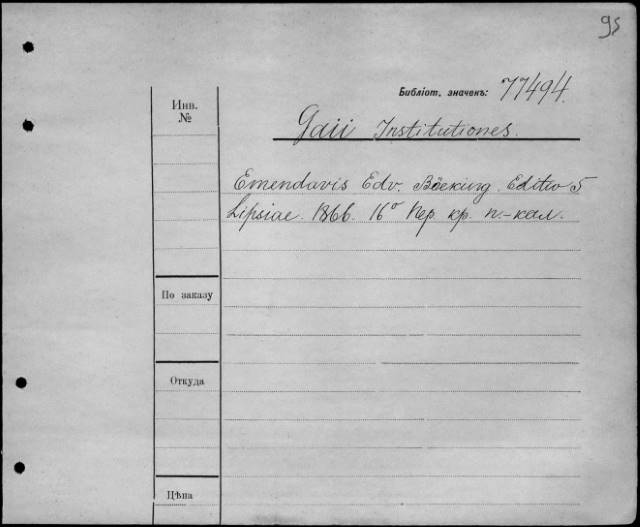 95
Библіот. значекъ: 77494.
Инв.
№
Gaii Institutiones.
Emendavis Edv. Böcking. Editio 5
Lipsiae. 1866. 16° Пер. кр. п.-кал.
По заказу
Откуда
Цѣна